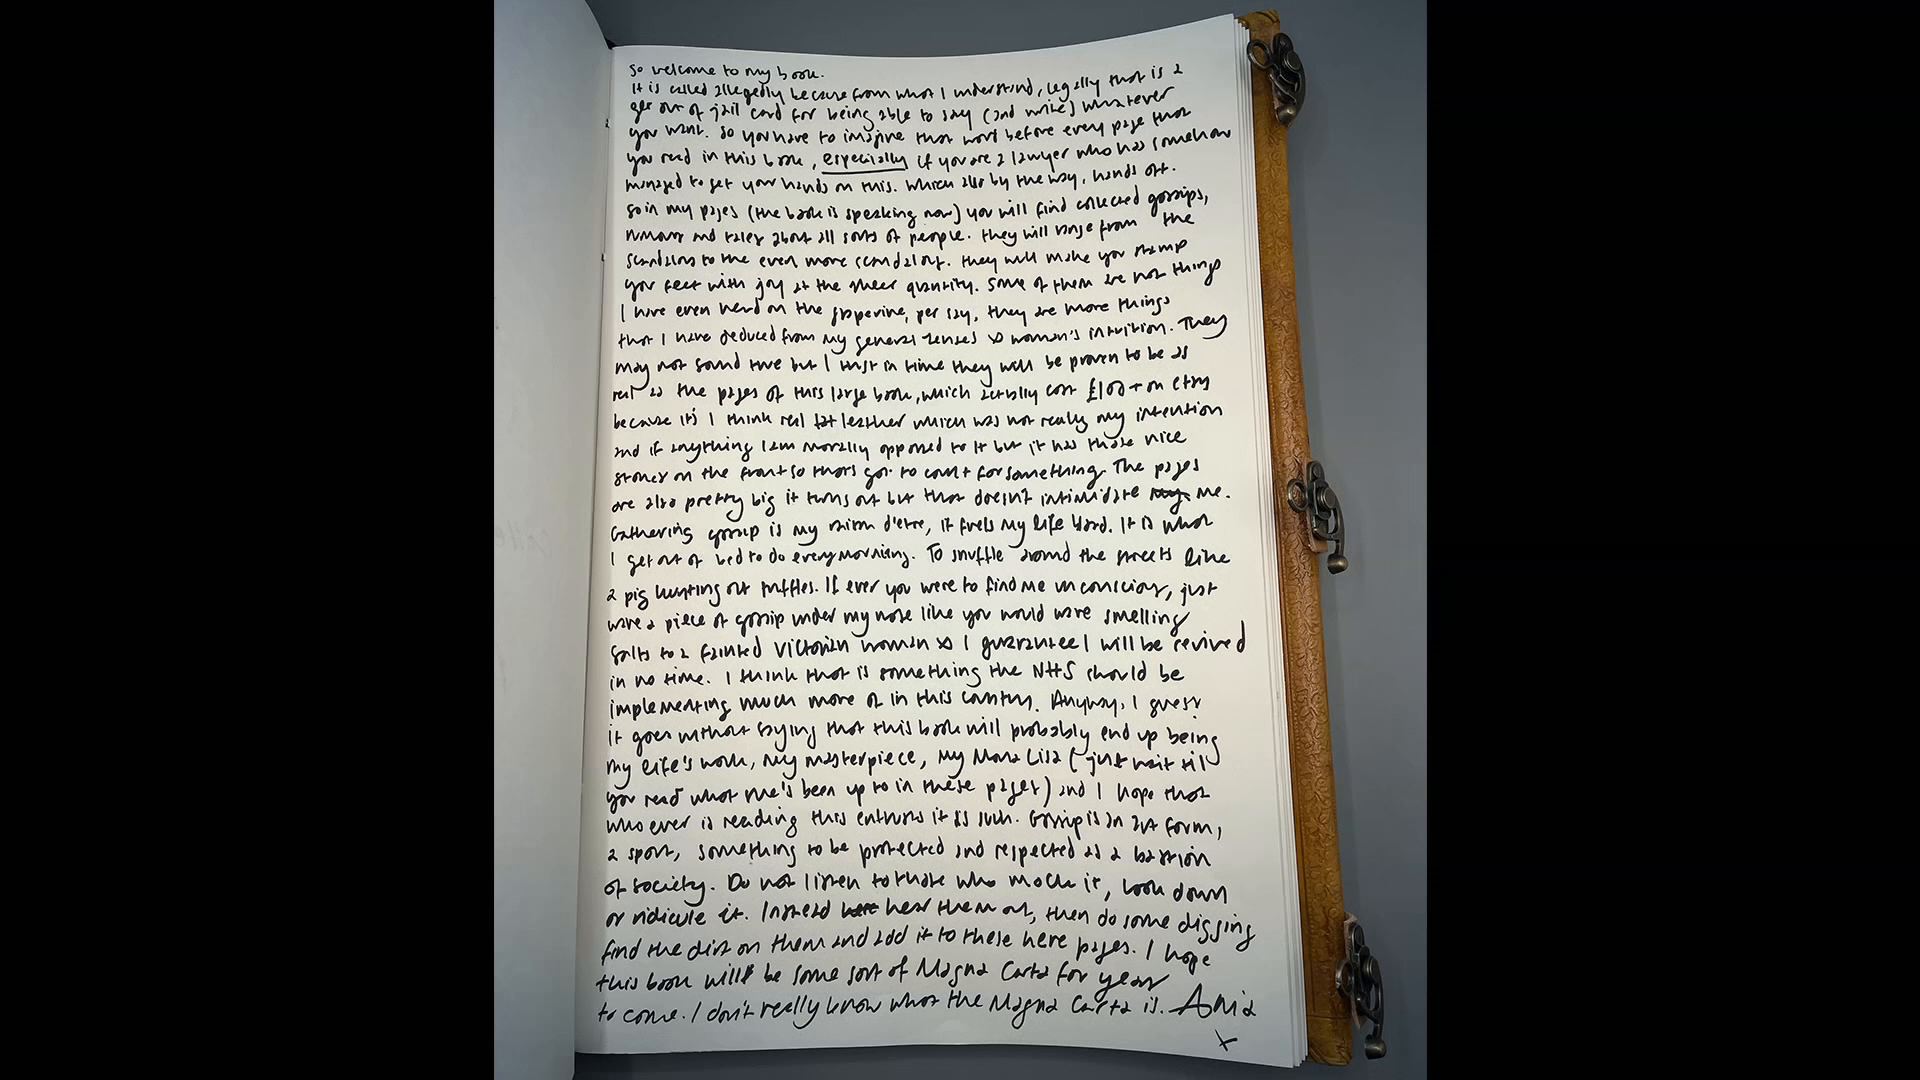 So welcome to my book.
It is called allegedly because from what I understand, legally that is a
get out of jail card for being able to say (and write) whatever
you want. So you have to imagine that word before every page that
you read in this book, especially if you are a lawyer who has somehow
managed to get your hands on this. Which also by the way, hands off.
So in my pages (the book is speaking now) you will find collected gossips,
rumours and tales about all sorts of people. They will range from the
scandalous to the even more scandalous. They will make you stamp
your feet with joy at the sheer quantity. Some of them are not things
I have even heard on the grapevine, per say, they are more things
that I have deduced from my general senses & woman's intuition. They
may not sound true but I trust in time they will be proven to be as
real as the pages of this large book, which actually cost £100+ on etsy
because it's I think real leather which was not really my intention
and if anything I am morally opposed to it but it has those nice
stones on the front so thats got to count for something. The pages
are also pretty big it turns out but that doesn't intimidate my me.
Gathering gossip is my raison d'etre, it fuels my life blood. It is what
I get out of bed to do every morning. To snuffle around the streets like
a pig hunting out truffles. If ever you were to find me unconscious, just
wave a piece of gossip under my nose like you would wave smelling
salts to a fainted Victorian woman & I guarantee I will be revived
in no time. I think that is something the NHS should be
implementing much more of in this country. Anyway, I guess
it goes without saying that this book will probably end up being
my life's work, my masterpiece, my Mona Lisa (just wait til
you read what she's been up to in these pages) and I hope that
who ever is reading this enthuses it as such. Gossip is an art form,
a sport, something to be protected and respected as a bastion
of society. Do not listen to those who mock it, look down
or ridicule it. Instead here hear them out, then do some digging
find the dirt on them and add it to these here pages. I hope
this book will be some sort of Magna Carta for years
to come. I don't really know what the Magna Carta is. Ania
x